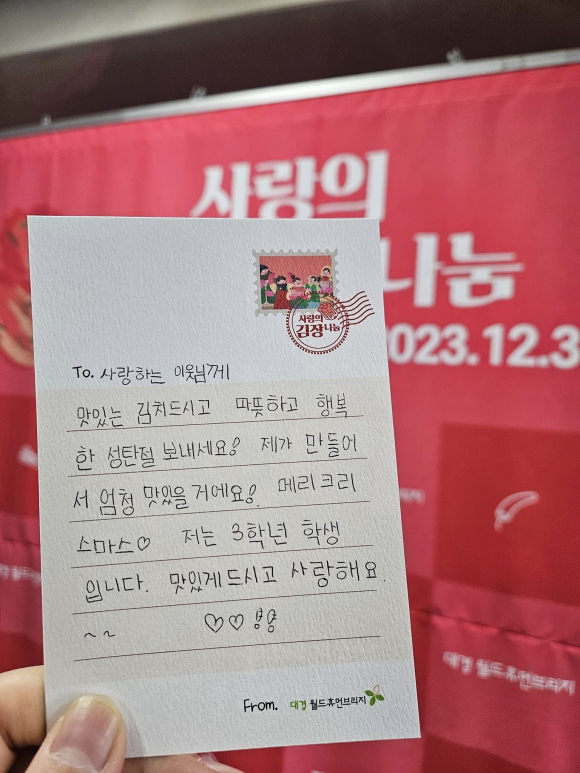 사랑의
나눔
2023.12.3
사랑의
김장나눔
To. 사랑하는 이웃님께
맛있는 김치드시고 따뜻하고 행복
한 성탄절 보내세요! 제가 만들어
서 엄청 맛있을 거에요! 메리크리
스마스♡ 저는 3학년 학생
입니다. 맛있게드시고 사랑해요.
~~ ♡♡
From. 대경 월드휴먼브리지
대경 월드휴먼브리지